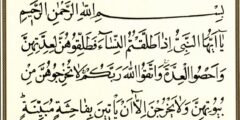 بِسْمِ اللَّهِ الرَّحْمَٰنِ الرَّحِيمِ
يَا أَيُّهَا النَّبِيُّ إِذَا طَلَّقْتُمُ النِّسَاءَ فَطَلِّقُوهُنَّ لِعِدَّتِهِنَّ
وَأَحْصُوا الْعِدَّةَ وَاتَّقُوا اللَّهَ رَبَّكُمْ لَا تُخْرِجُوهُنَّ مِنْ
بُيُوتِهِنَّ وَلَا يَخْرُجْنَ إِلَّا أَنْ يَأْتِينَ بِفَاحِشَةٍ مُبَيِّنَةٍ